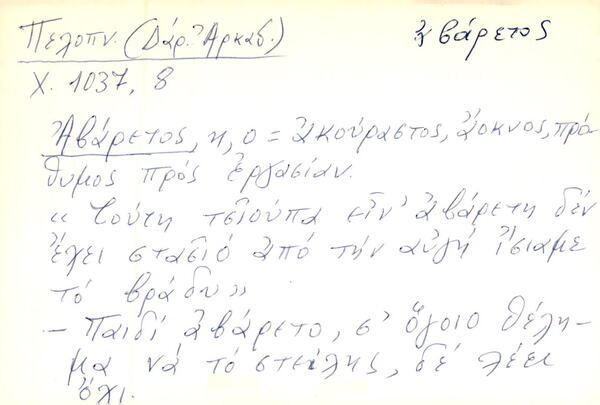 Πελοπν. (Δάρ. Ἀρκαδ.) ἀβάρετος
Χ. 1037, 8
Ἀβάρετος, η, ο = ἀκούραστος, ἄοκνος, πρό-
θυμος πρός ἐργασίαν.
« Τούτη τσιούπα εἶν' ἀβάρετη δέν
ἔχει στασιό ἀπό τήν αὐγή ἴσιαμε
τό βράδυ»
- Παιδί ἀβάρετο, σ' ὅγοιο θέλη-
μα νά τό στείλης, δέ λέει
ὄχι.